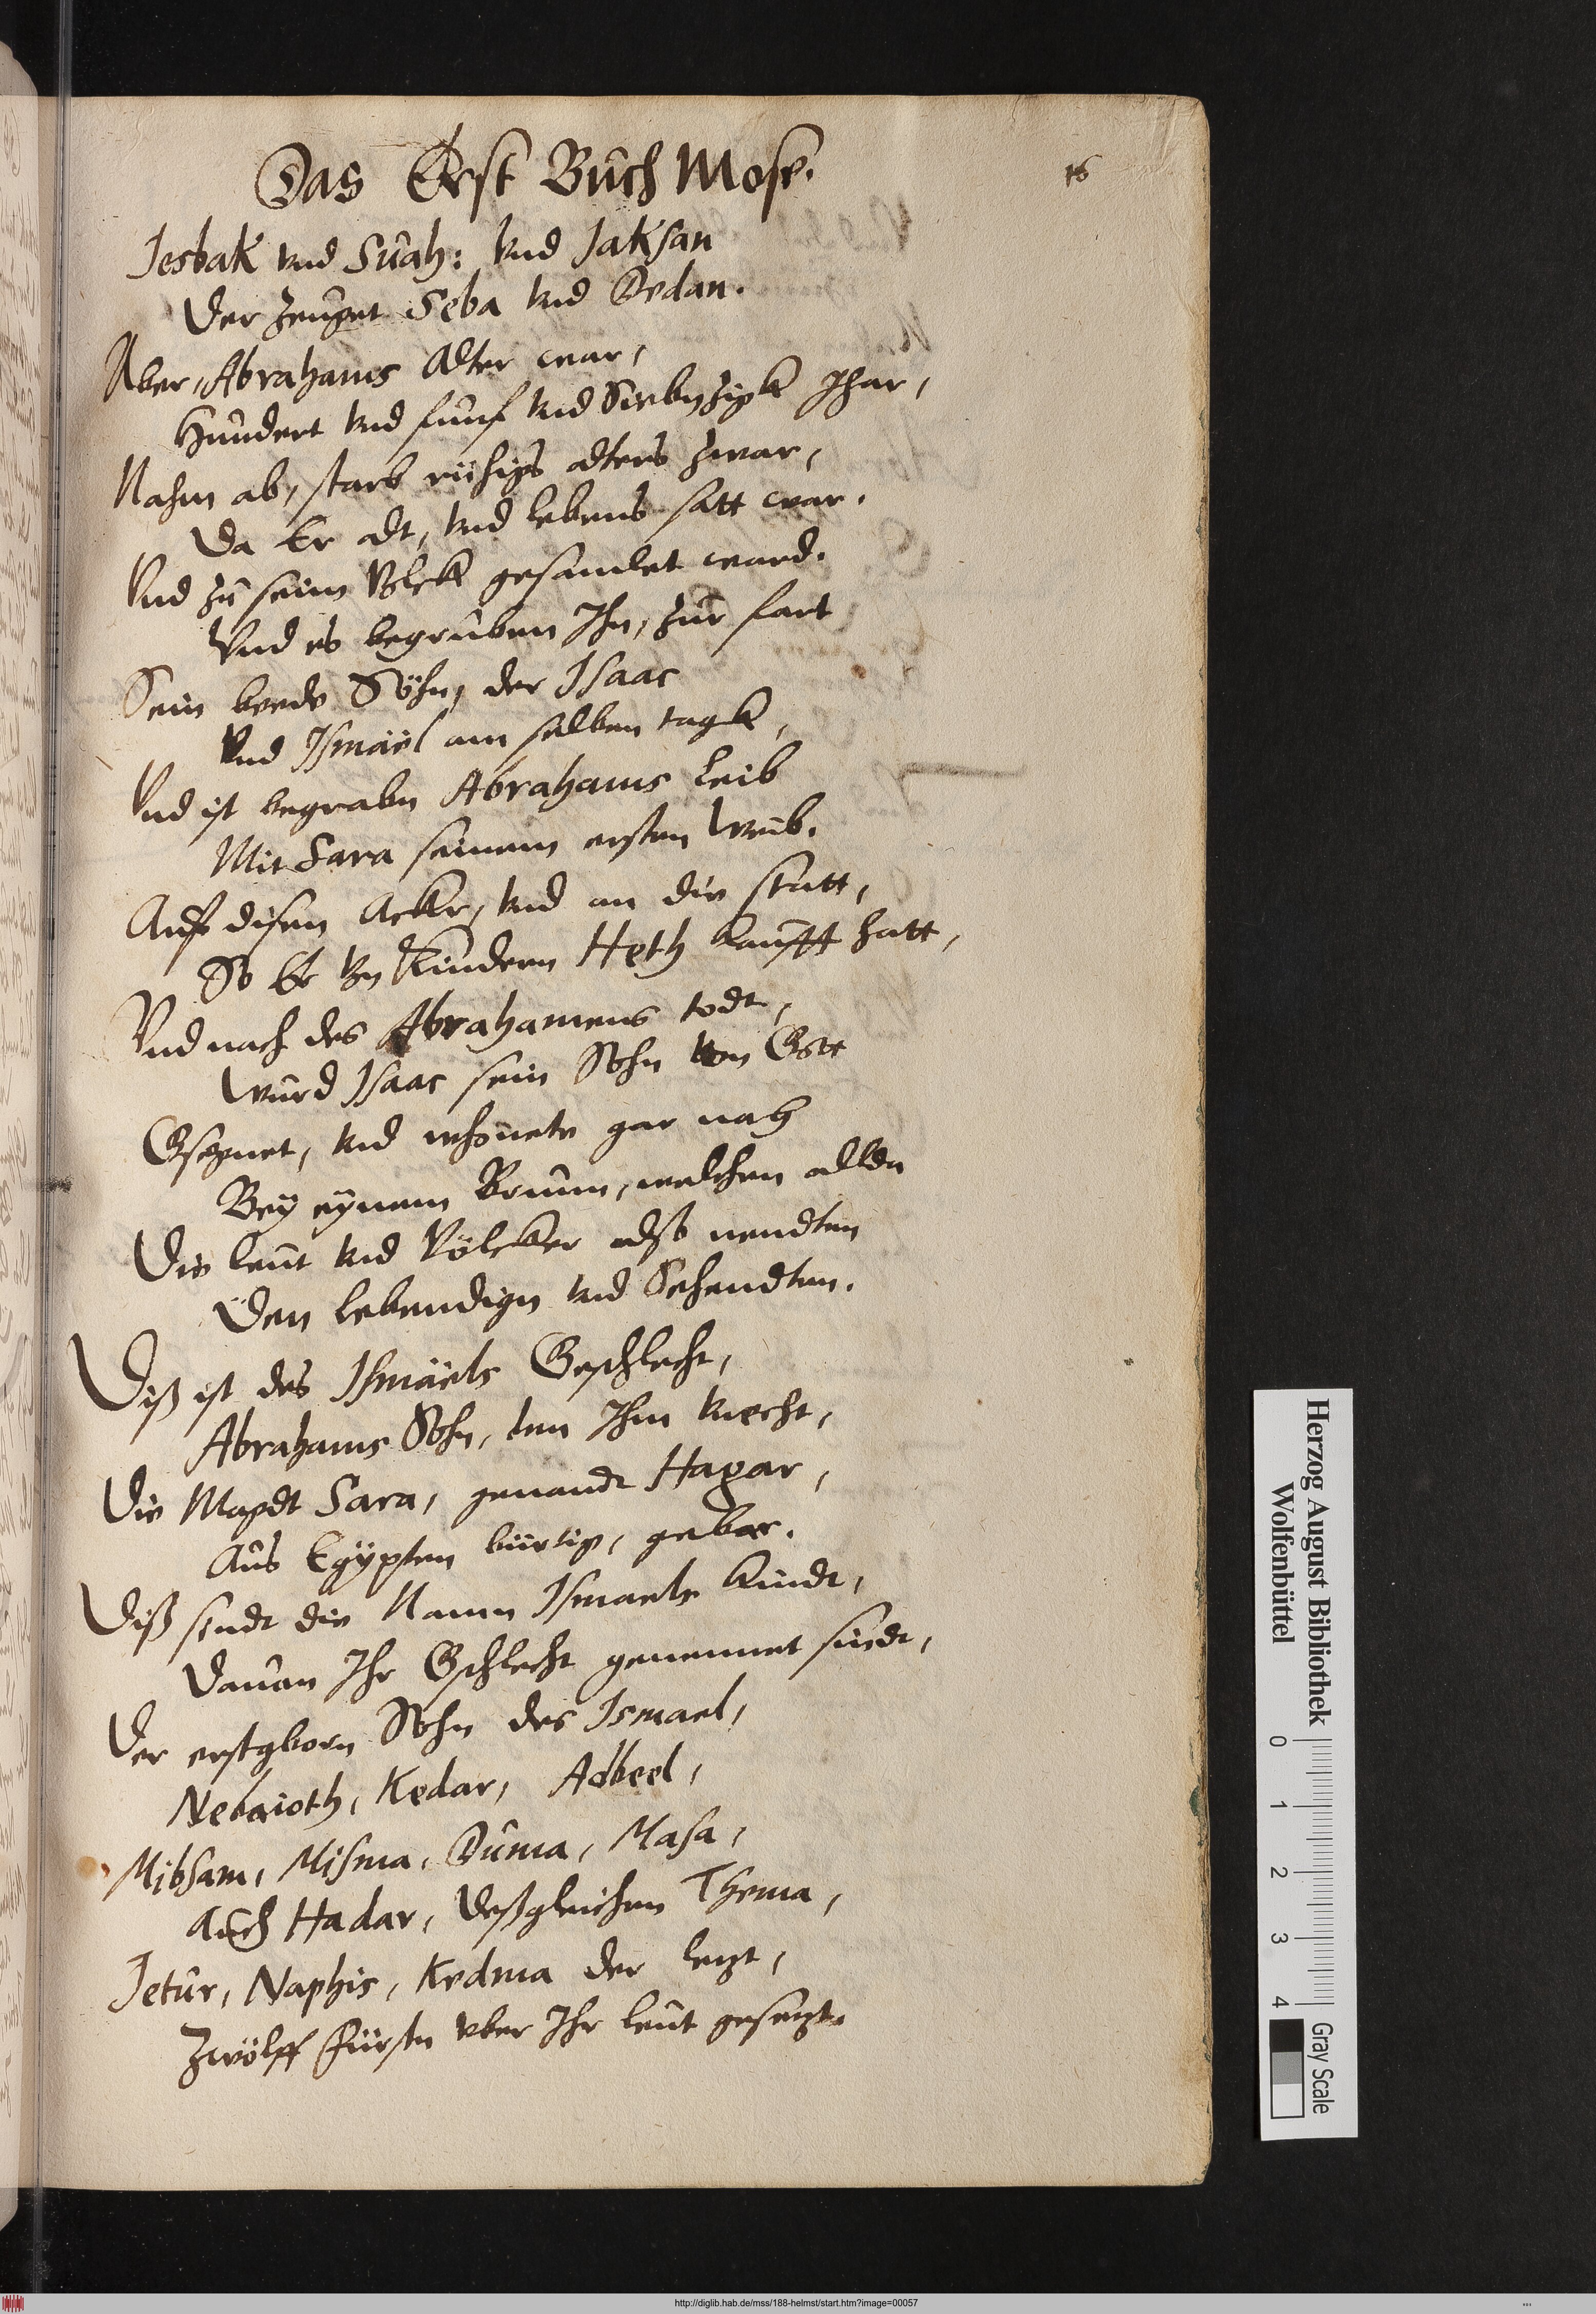 Das Erst Buch Mose.
16
Jesbak vnd Suah: vnd Jaksan
Der zeuget Seba vnd Dedan.
Aber, Abrahams Alter war,
Hundert vnd funf vnd Siebnzigk Jhar,
Nahm ab, starb rühigs alters zwar,
Da Er alt, vnd lebens satt war.
Vnd zu seim Volck gesamlet ward.
Vnd es begruben Ihn, zur fart
Sein beede Söhn, der Isaac
Vnd Ismäel am selben tagk,
Vnd ist begrabn Abrahams Leib
Mit Sara seinem ersten Weib.
Auf disen Acker, vnd an die statt,
So Er vn Kindern Heth kaufft hatt,
Vnd nach des Abrahamens todt,
Wurd Isaac sein Sohn von Gott
Gsegnet, vnd whonete gar nah
Bey eynem Brunn, welchen allda
Die leut vnd Völcker alßo nendten
Den lebendign vnd Sehendten.
Diß ist des Ismäels Geschlecht,
Abrahams Sohn, den Ihm knecht,
Die Magdt Sara, genandt Hagar,
Aus Egÿpten bürtig, gebar.
Diß sindt die Namn Ismaels kindt,
Dauan Ihr Gschlecht genennet sindt,
Der erstgborn Sohn des Ismael,
Nebaioth, Kedar, Adbeel,
Mibsam, Misma, Duma, Masa,
Auch Hadar, deßgleichen Thema,
Jetur, Naphis, Kedma der letzt,
Zwölff Fürstn vber Ihr leut gesetzt.
Herzog August Bibliothek
Wolfenbüttel
0 1 2 3 4
Gray Scale
http://diglib.hab.de/mss/188-helmst/start.htm?image=00057